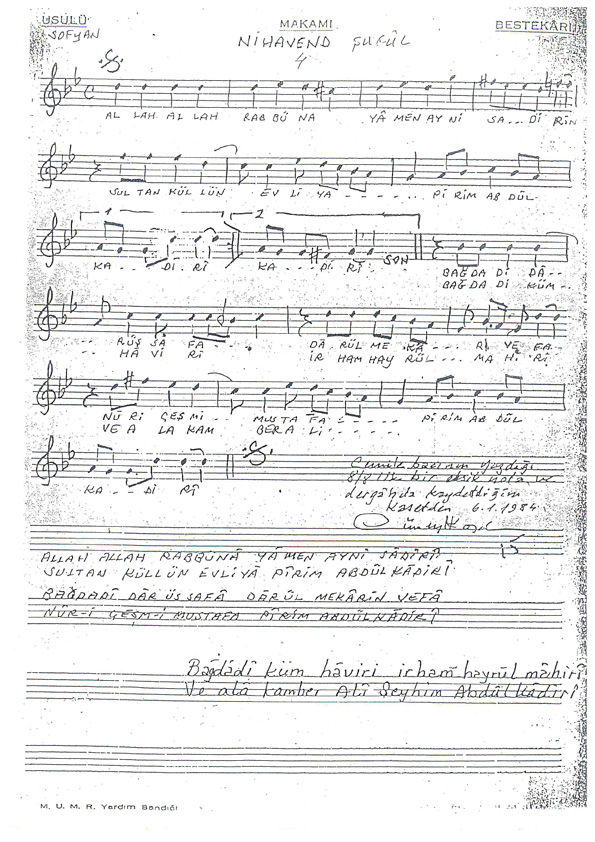 USÛLÜ MAKAMI BESTEKÂRI
SOFYAN NİHAVEND ŞUĞÛL
4
AL LAH AL LAH RAB BÜ NA YÂ MEN AY NI SA... DI RİN
SUL TAN KÜL LÜN EV Lİ YA - - - - - - Pİ RİM AB DÜL
1 2
KA - - - DI. RÎ KA - - . DI. RÎ. SON BAĞ DA DI DÂ - -
BAĞ DA DI KÜM -
- - RÜS SA FA - - DÂ. RÜL ME. KA... RI VE FA..
- - HÂ Vİ RÎ İR HAM HAY RÜL... MA Hİ. Rİ
NÛ Rİ ÇEŞ Mİ . . MUS TA FA. - - - - . Pİ RİM AB DÜL
VE A LA KAM BER A Lİ - - - - -
KA - - - DI RÎ
8/8 lik bir eksik nota ve
dergâhda kaydettiğim
kasetden 6.1.1984
15
ALLAH ALLAH RABBÜNÂ YÂ MEN AYNİ SÂDİRÎ
SULTAN KÜLLÜN EVLİYÂ PÎRİM ABDÜLKÂDİRÎ
BAĞDADÎ DÂR ÜS SAFÂ DÂRÜL MEKÂRİN VEFÂ
NÛR-İ ÇEŞM-İ MUSTAFA PÎRİM ABDÜLNÂDİRÎ
Bağdâdî küm hâviri irham hayrül mâhirî
Ve alâ kamber Alî Şeyhim Abdülkâdirî
M. U. M. R. Yardım Sandığı